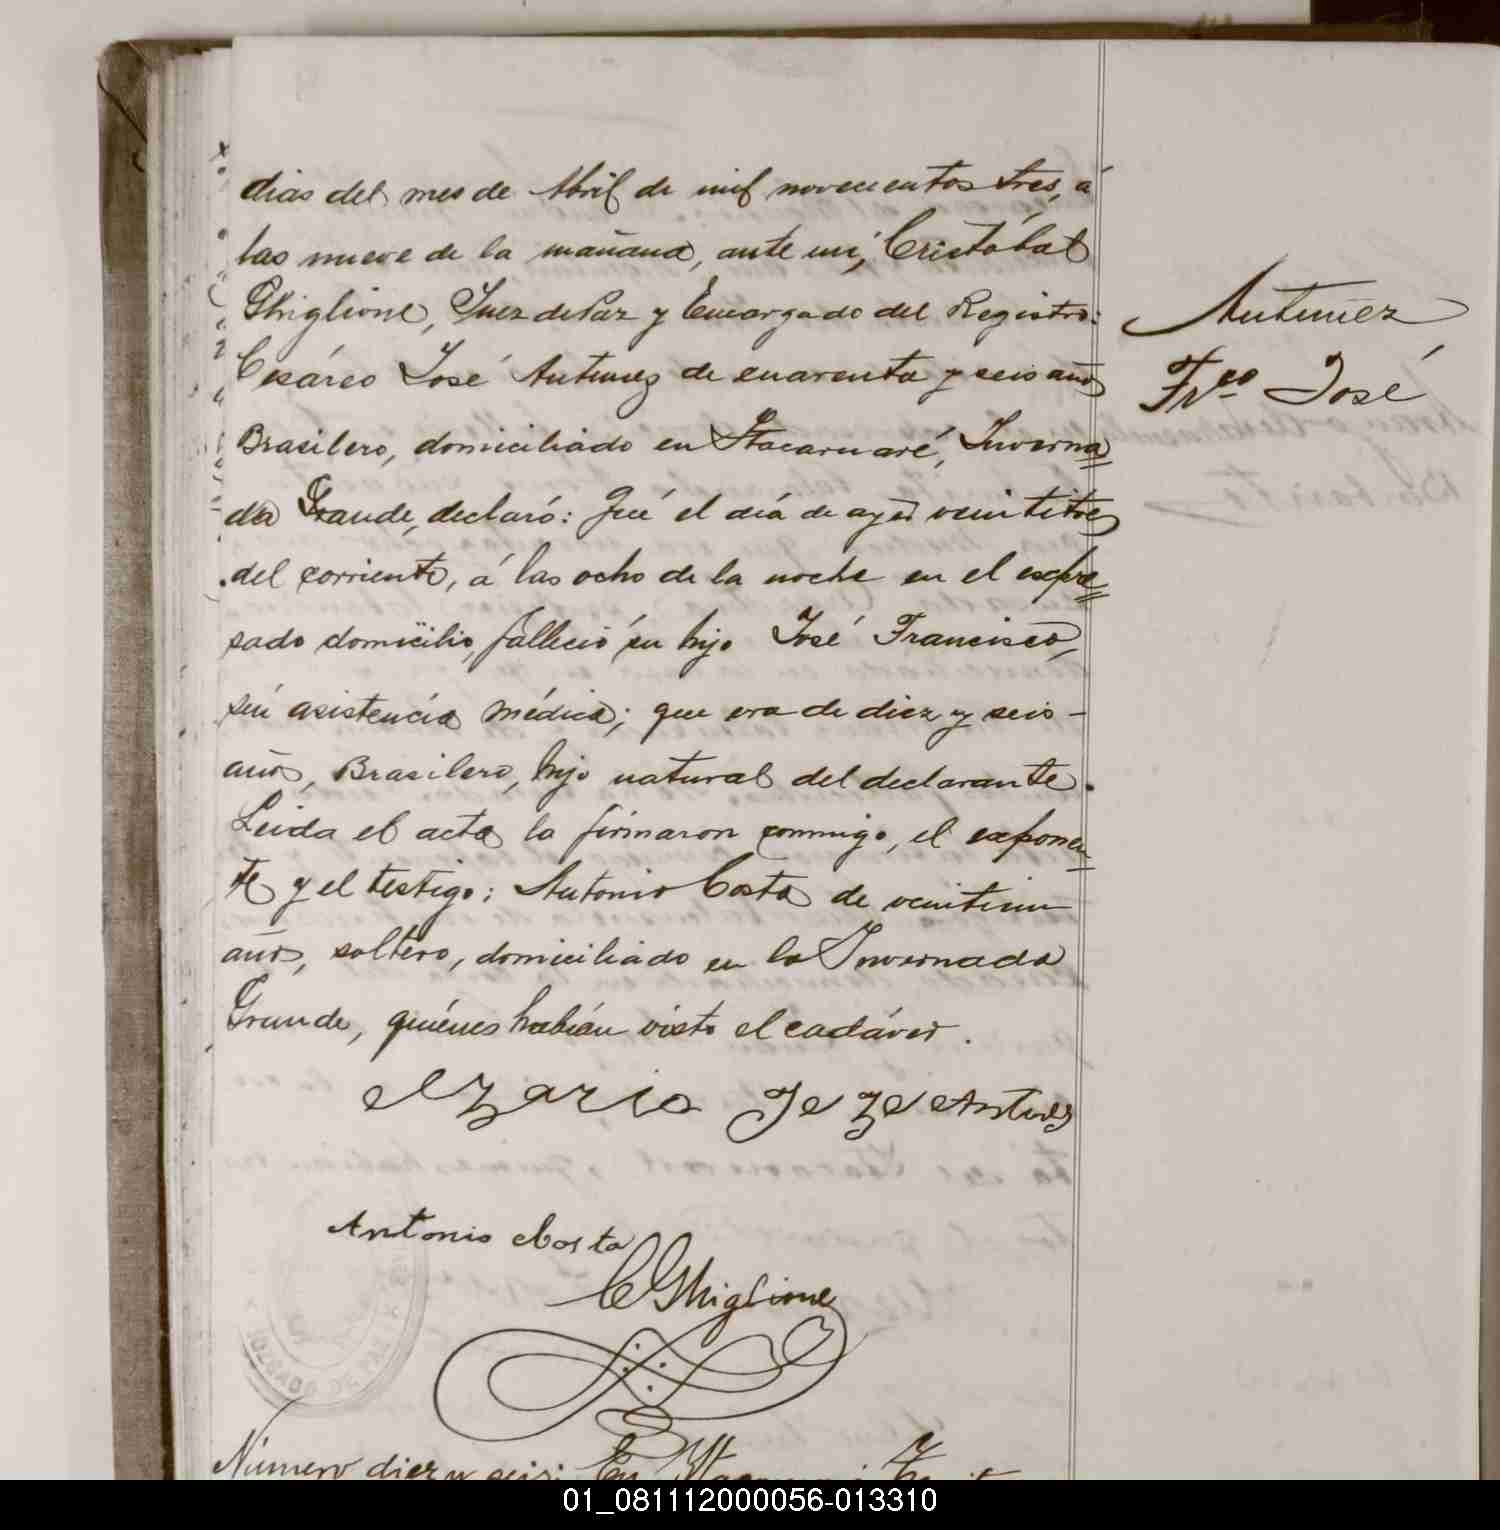 dias del mes de Abril de mil novecientos tres, á
las nueve de la mañana, ante mi, Cristóbal
Ghiglione, Juez de Paz y Encargado del Registro:
Cesáreo José Antunez de cuarenta y seis años
Brasilero, domiciliado en Itacaruaré, Inverna
da Grande, declaró: Qué el día de ayer veintitres
del corriente, á las ocho de la noche en el expre
sado domicilio, falleció su hijo José Francisco,
sin asistencia médica; que era de diez y seis -
años, Brasilero, hijo natural del declarante.
Leida el acta la firmaron conmigo, el exponen
te y el testigo: Antonio Costa de veintiun
años, soltero, domiciliado en la Invernada
Grande, quiénes habián visto el cadáver.
Antonio Costa
C Ghiglione
JUZGADO DE PAZ
Número diez y seis: En
Antunez
Frco José
01_081112000056-013310